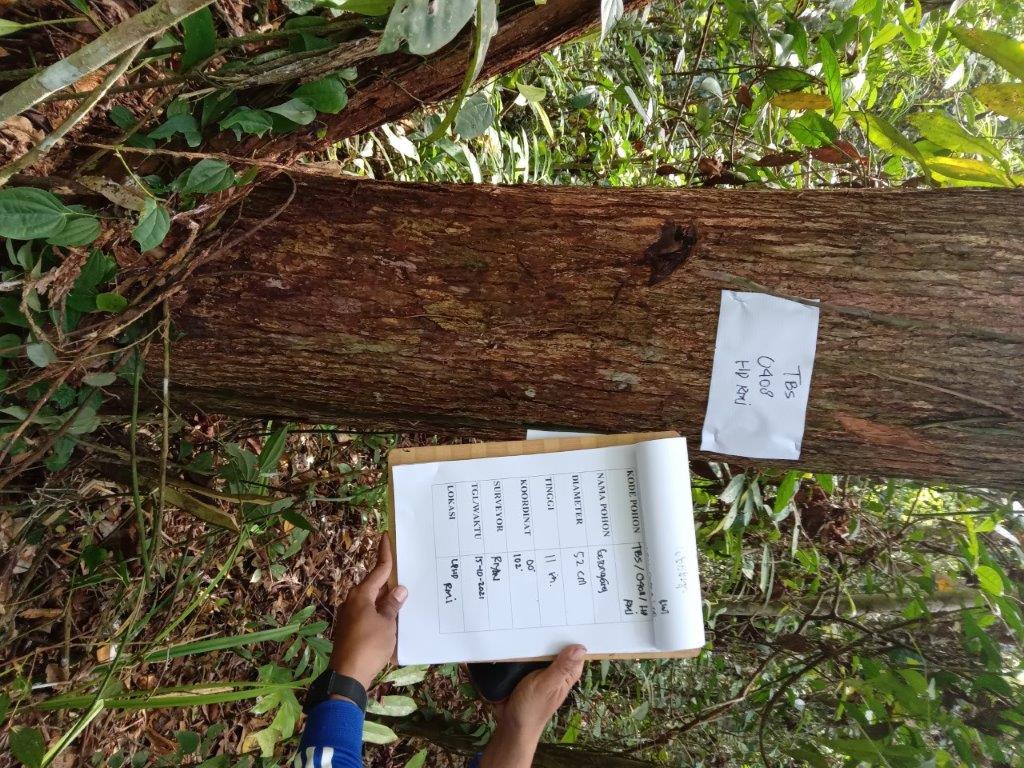 TBS
0408
HD RMJ
RMJ
KODE POHON TBS / 0408 / HD
RMJ
NAMA POHON
DIAMETER 52 CM
TINGGI 11 m.
KOORDINAT 00°
102°
SURVEYOR RIYAN
TGL/WAKTU 15-10-2021
LOKASI LPHD
RMJ